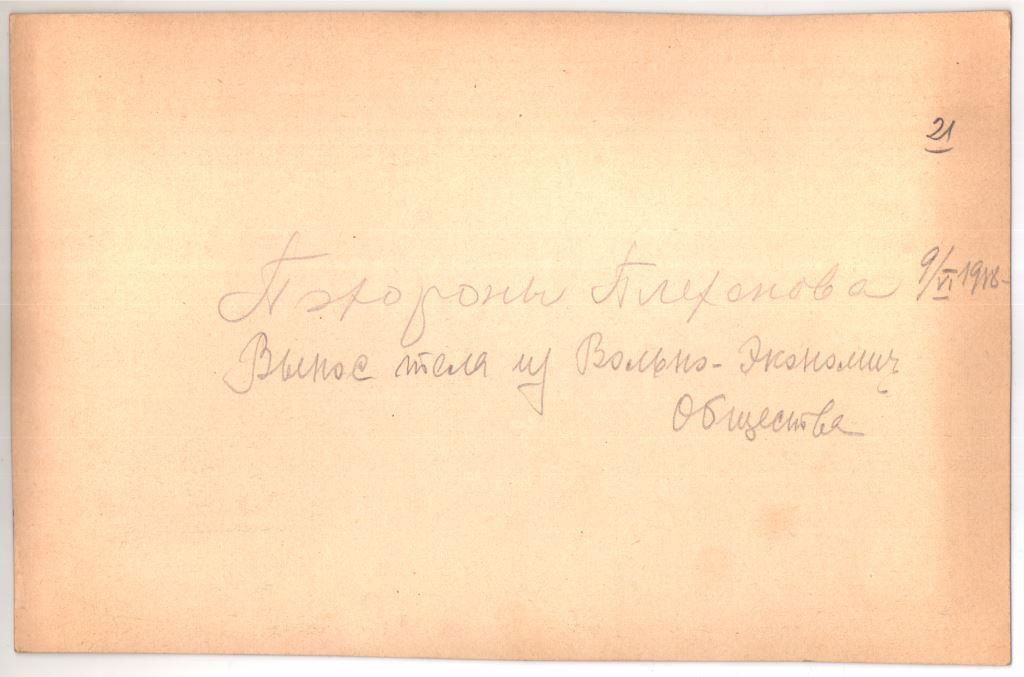 21
Похороны Плеханова 9/VI 1918
Вынос тела из Вольно-Экономич
Общества